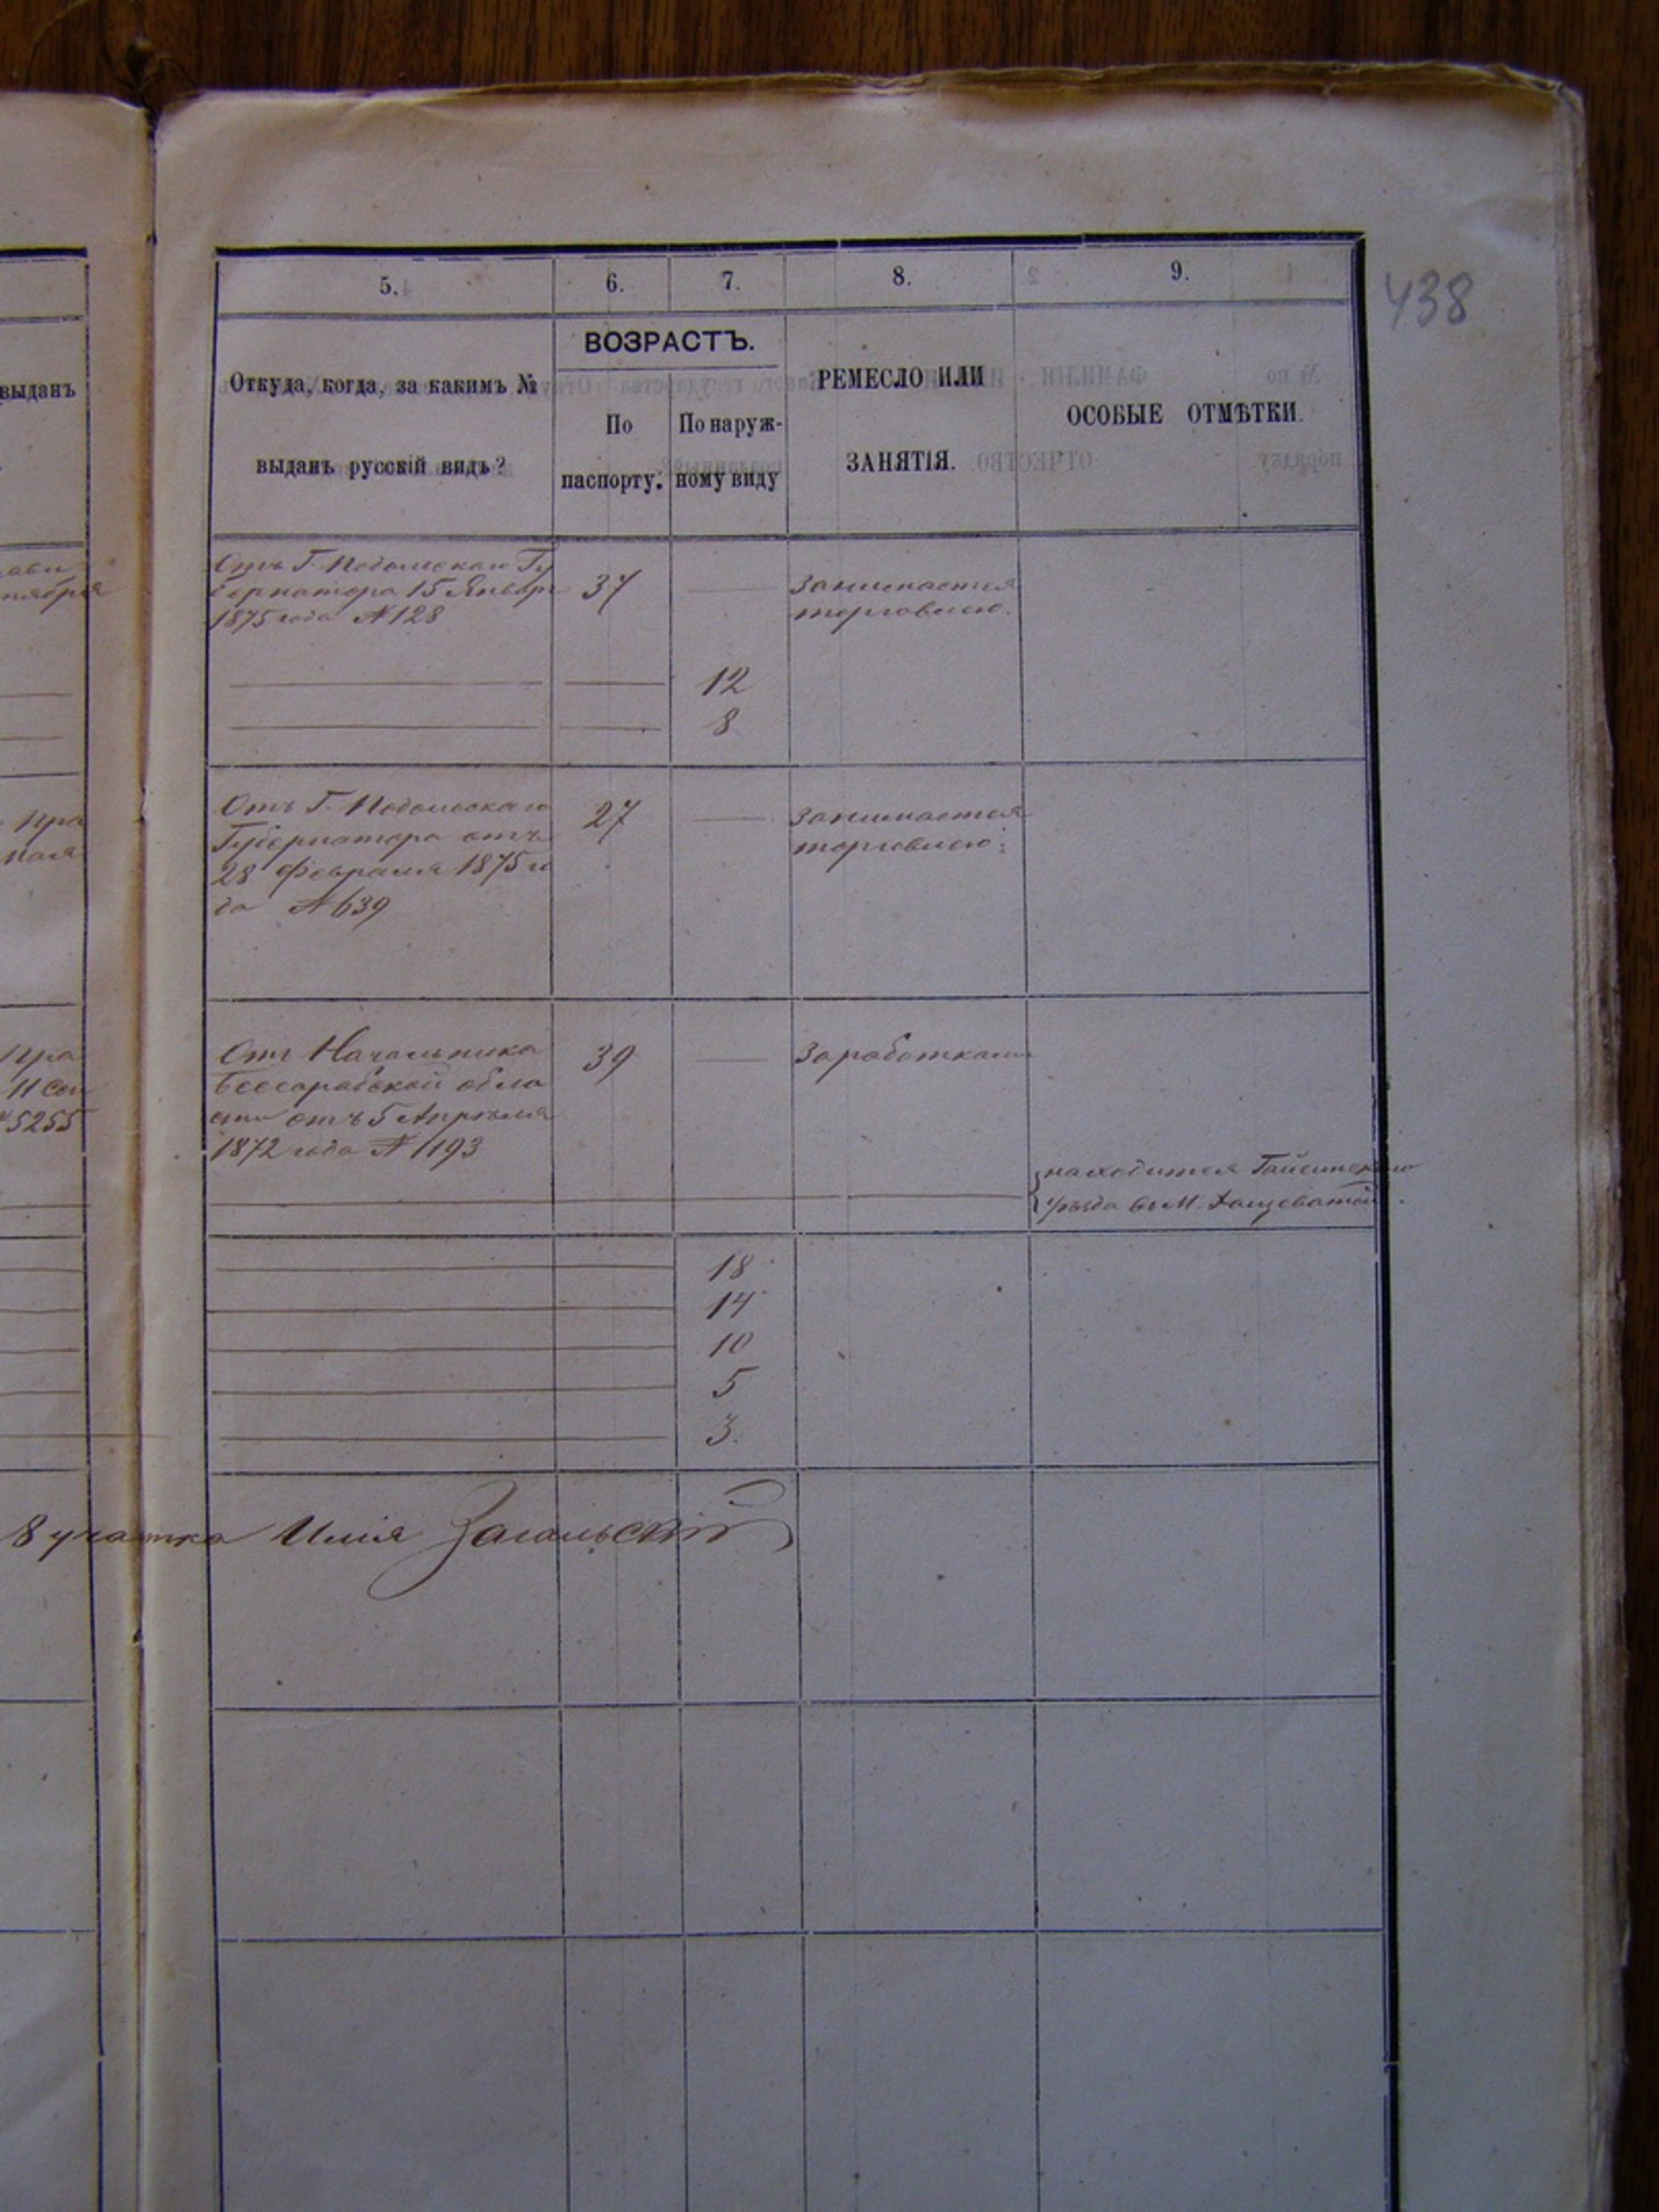 438
5. 6. 7. 8. 9.
ВОЗРАСТЪ.
Откуда, когда, за какимъ №
выданъ русскій видъ?
По
паспорту.
По наруж-
ному виду
РЕМЕСЛО ИЛИ
ЗАНЯТІЯ.
ОСОБЫЕ ОТМѢТКИ.
выданъ
Отъ Г. Подольскаго Гу
бернатора 15 Января
1875 года № 128
37
занимается
торговлею.
12
8
Отъ Г. Подольскаго
Губернатора отъ
28 Февраля 1875 го
да № 639
27
занимается
торговлею.
Отъ Начальника
Бессарабской обла
сти отъ 5 Апрѣля
1872 года № 1193
39
заработками
находится Гайсинскаго
уѣзда въ М. Хащеватой
пра
11 Сен
5255
18
14
10
5
3.
8 участка Илія